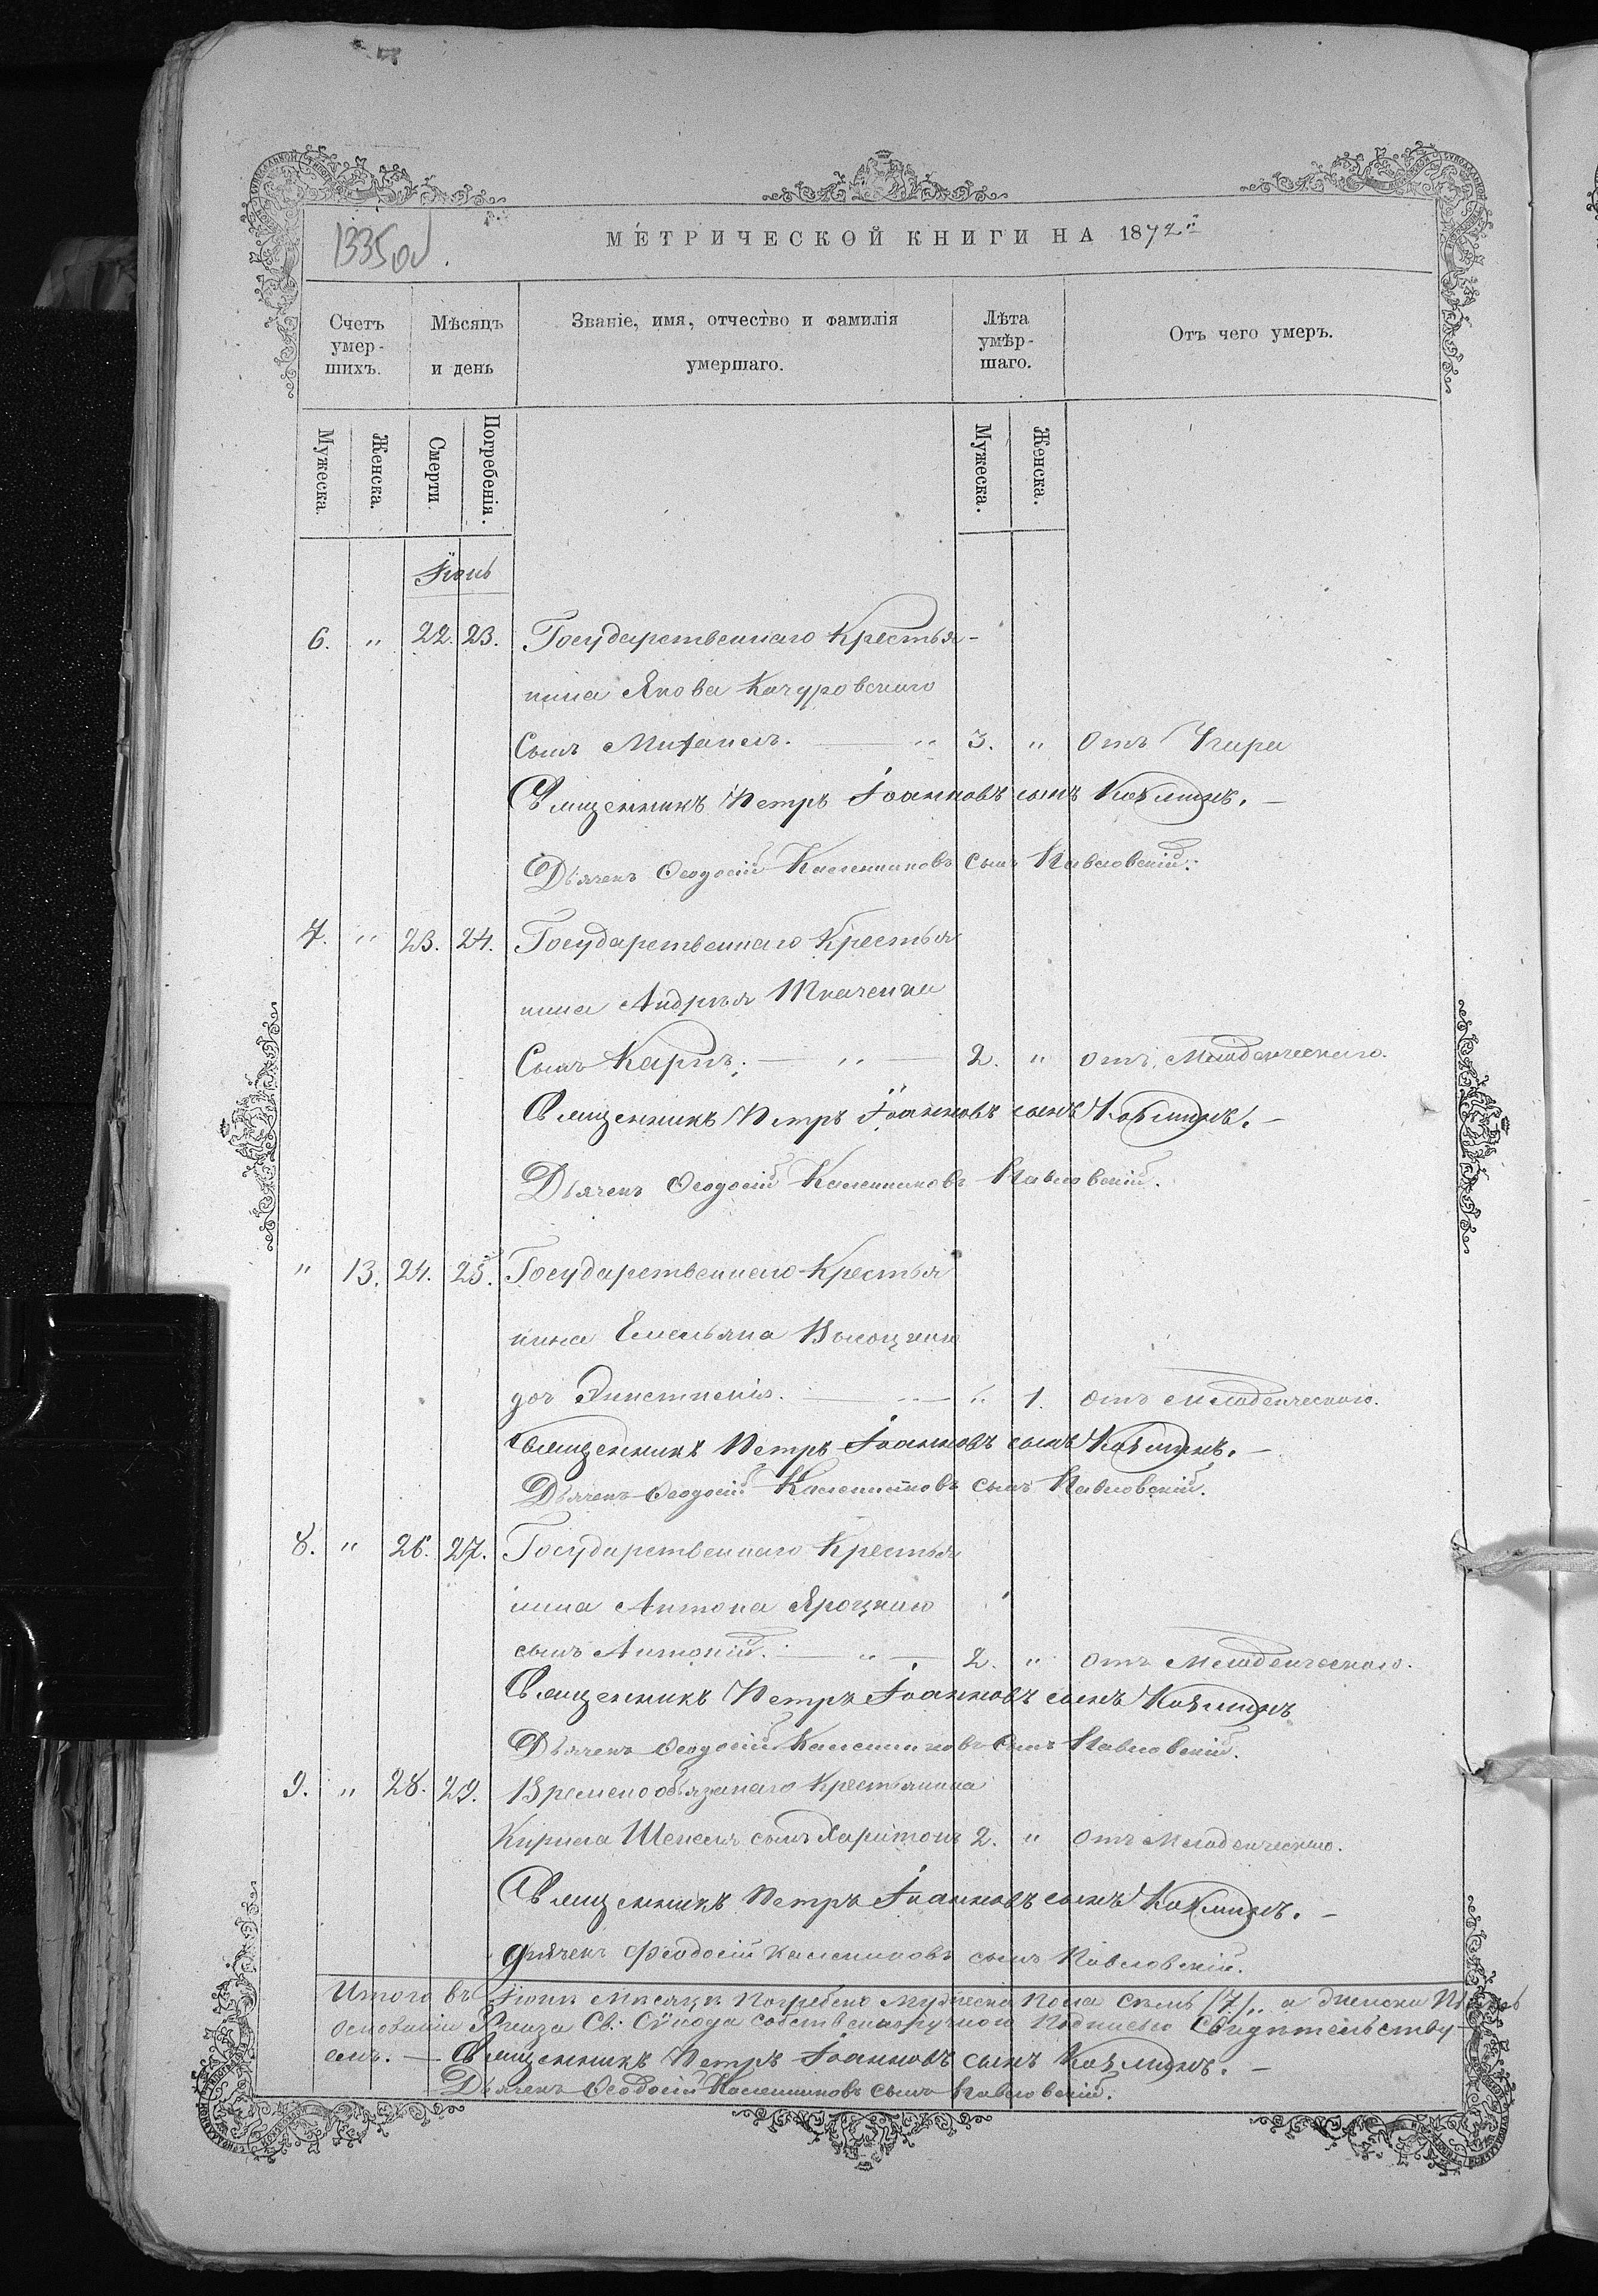 1335об.
МЕТРИЧЕСКОЙ КНИГИ НА 1872й
Счетъ умер-шихъ.
Мѣсяцъ и день
Званіе, имя, отчество и фамилія умершаго.
Лѣта умер-шаго.
Отъ чего умеръ.
Мужеска.
Женска.
Смерти.
Погребенія.
Мужеска.
Женска.
Іюнь
6. " 22. 23. Государственнаго Крестья-
нина Якова Качуровскаго
Сынъ Михаилъ. — " 3. " Отъ Жара
Священникъ Петръ Іоанновъ сынъ
Дьячекъ Ѳеодосій Каленниковъ сынъ Павловскій.
7. " 23. 24. Государственнаго Крестья
нина Андрея Ткаченка
Сынъ Карпъ. — " — 2. " отъ Младенческаго.
Священникъ Петръ Іоанновъ сынъ
Дьячекъ Ѳеодосій Каленниковъ Павловскій.
" 13. 24. 25. Государственнаго Крестья
нина Емельяна
доч — " 1. отъ младенческаго.
Священникъ Петръ Іоанновъ сынъ
Дьячекъ Ѳеодосій Каленниковъ сынъ Павловскій.
8. " 26. 27. Государственнаго Крестья
нина Антона Яроцкаго
сынъ Антоній. — " — 2. " Отъ Младенческаго.
Священникъ Петръ Іоанновъ сынъ
Дьячекъ Ѳеодосій Каленниковъ Сынъ Павловскій.
9. " 28. 29. Временообязанаго Крестьянина
Кирила Шепеля сынъ Харитонъ 2. " Отъ Младенческаго.
Священникъ Петръ Іоанновъ сынъ
Дьячекъ Феодосій Калениковъ сынъ Павловскій.
Итого въ Іюнѣ Мѣсяцѣ Погребено Мужеска Пола семь /7/., а Женска
основаніи Указа Св: Сѵнода собственноручною Подписью Свидѣтельству
емъ. — Священникъ Петръ Іоанновъ сынъ
Дьячекъ Ѳеодосій Каленниковъ сынъ Павловскій.